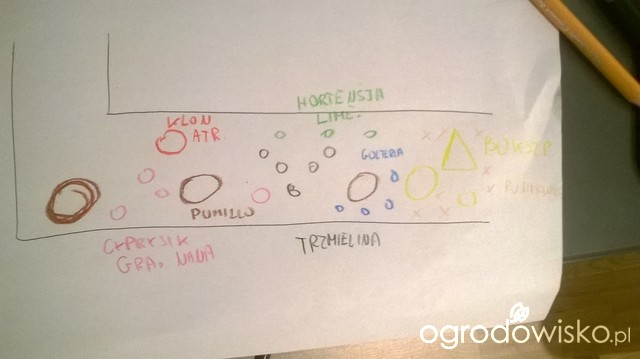 HORTENSJA
LIME.
KLON
ATR.
GOLTERIA
BUKSZP
PUMILLO
B
CYPRYSIK
GRA. NANA
TRZMIELINA
ogrodowisko.pl